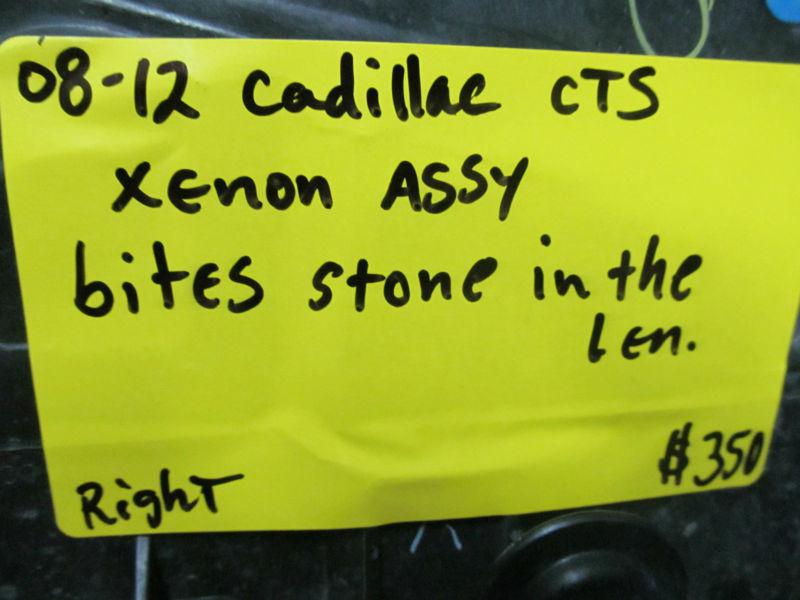 08-12 Cadillac CTS
XEnon ASSY
bitES stone in the
lEn.
RighT
$350